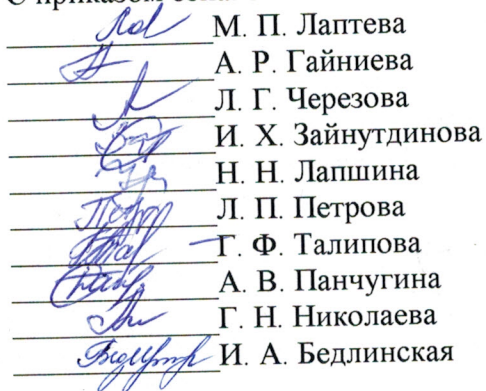 С приказом
М. П. Лаптева
А. Р. Гайниева
Л. Г. Черезова
И. Х. Зайнутдинова
Н. Н. Лапшина
Л. П. Петрова
Г. Ф. Талипова
А. В. Панчугина
Г. Н. Николаева
И. А. Бедлинская